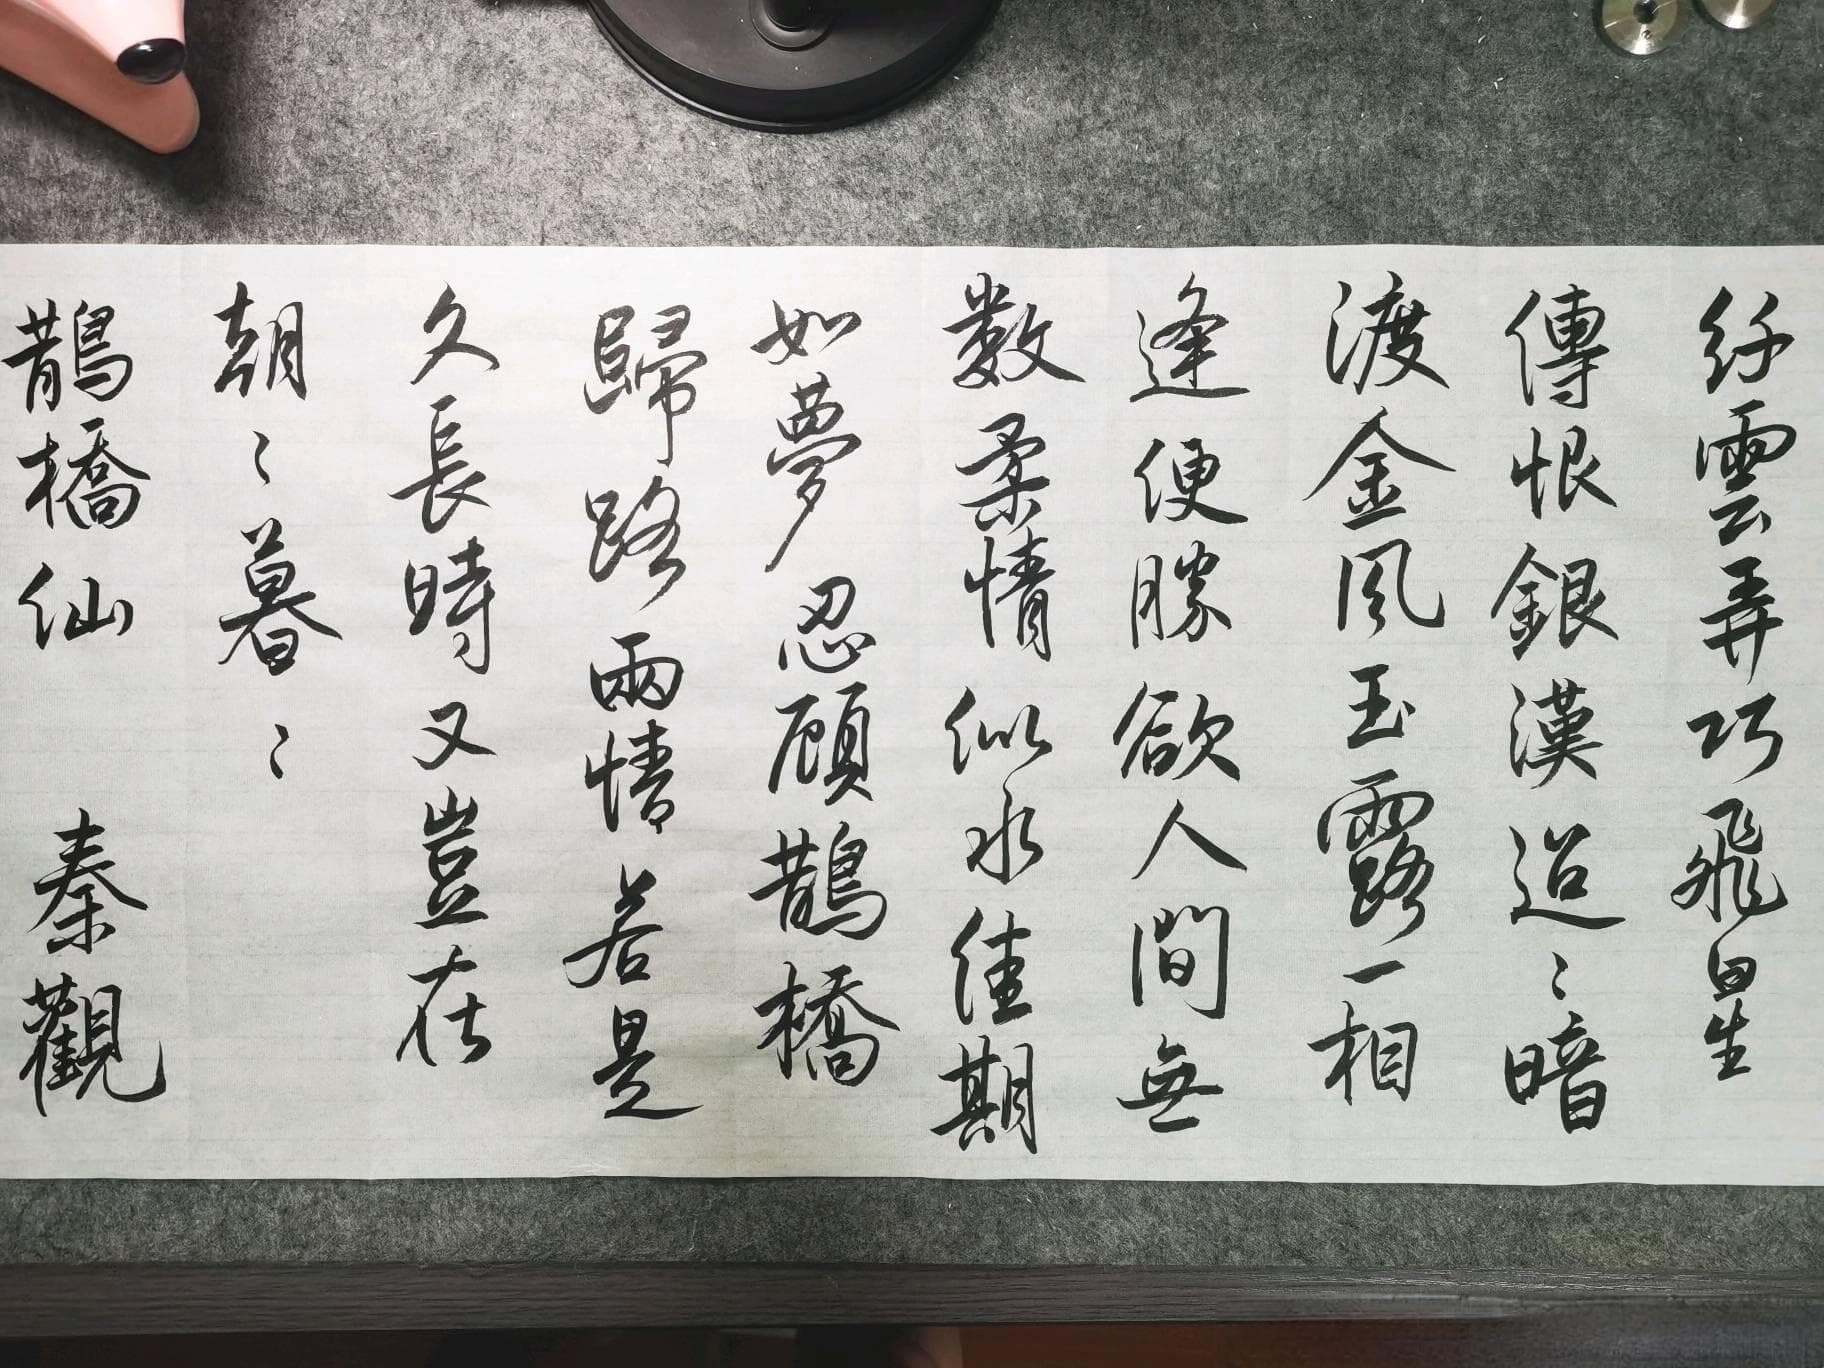 纤雲弄巧飛星
傳恨銀漢迢〻暗
渡金风玉露一相
逢便勝欲人間無
數柔情似水佳期
如夢忍顾鵲橋
歸路兩情若是
久長時又豈在
朝〻暮〻
鵲橋仙 秦觀